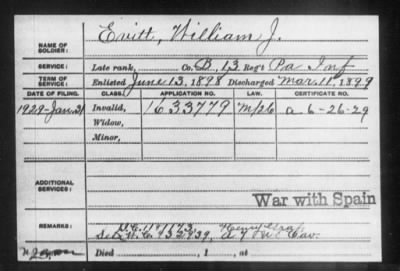 NAME OF SOLDIER: Evitt, William J.
SERVICE: Late rank, Co. B, 13 Reg't Pa Inf
TERM OF SERVICE: Enlisted June 13, 1898 Discharged Mar. 11, 1899
DATE OF FILING. CLASS. APPLICATION NO. LAW. CERTIFICATE NO.
1929-Jan-31 Invalid, 1633779 a 6-26-29
Widow,
Minor,
ADDITIONAL SERVICES:
War with Spain
REMARKS:
Died , 1 , at